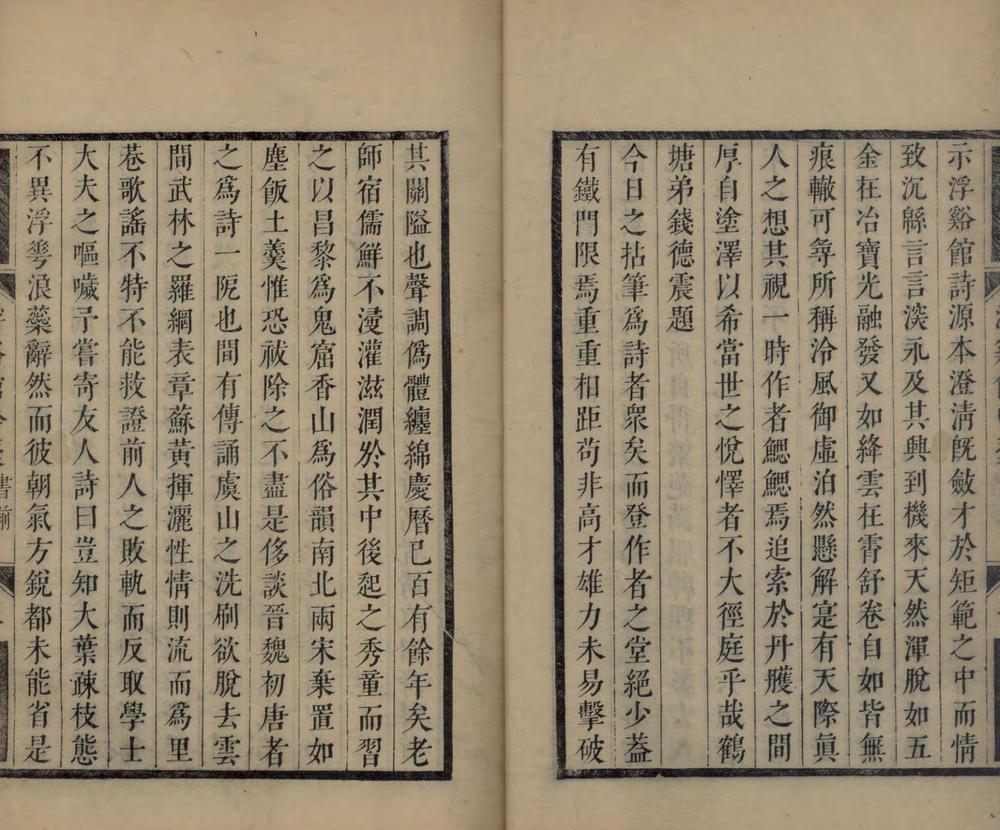 示浮谿館詩源本澄清旣斂才於矩範之中而情
致沉緜言言淡永及其興到機來天然渾脫如五
金在冶寶光融發又如絳雲在霄舒卷自如皆無
痕轍可尋所稱泠風御虛泊然懸解寔有天際眞
人之想其視一時作者鰓鰓焉追索於丹雘之間
厚自塗澤以希當世之悅懌者不大徑庭乎哉鶴
塘弟錢德震題
今日之拈筆爲詩者衆矣而登作者之堂絕少葢
有鐵門限焉重重相距苟非高才雄力未易擊破
其關隘也聲調僞體纏綿慶曆已百有餘年矣老
師宿儒鮮不漫灌滋潤於其中後起之秀童而習
之以昌黎爲鬼窟香山爲俗韻南北兩宋棄置如
塵飯土羹惟恐祓除之不盡是侈談晉魏初唐者
之爲詩一阨也間有傳誦虞山之洗刷欲脫去雲
間武林之羅網表章蘇黃揮灑性情則流而爲里
巷歌謠不特不能救證前人之敗軌而反取學士
大夫之嘔噦予嘗寄友人詩曰豈知大葉疎枝態
不異浮夸浪蘂辭然而彼朝氣方銳都未能省是